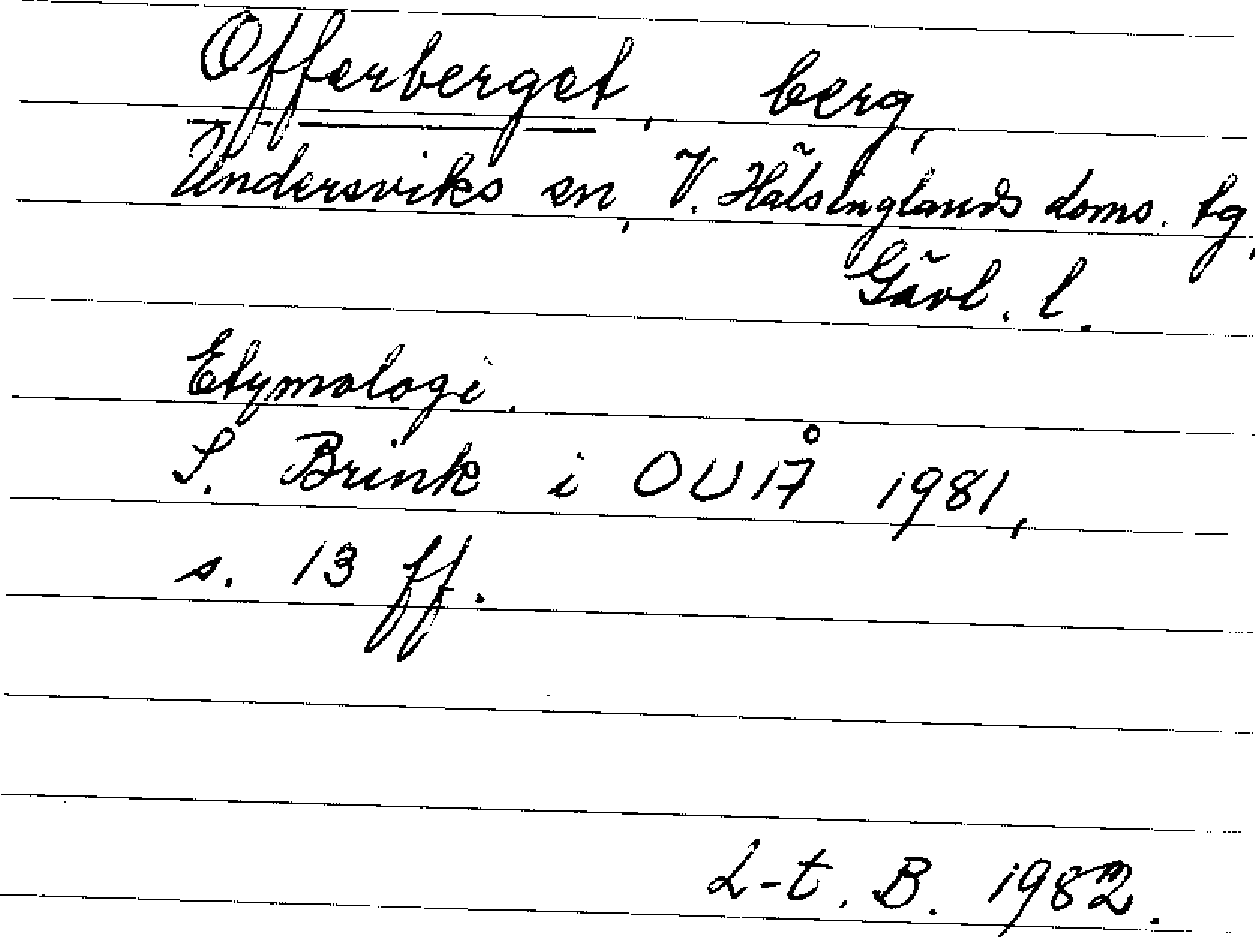 Offerberget, berg,
Undersviks sn, V. Hälsinglands doms. tg,
Gävl. l.
Etymologi.
S. Brink i OUÅ 1981,
s. 13 ff.
L-t. B. 1982.